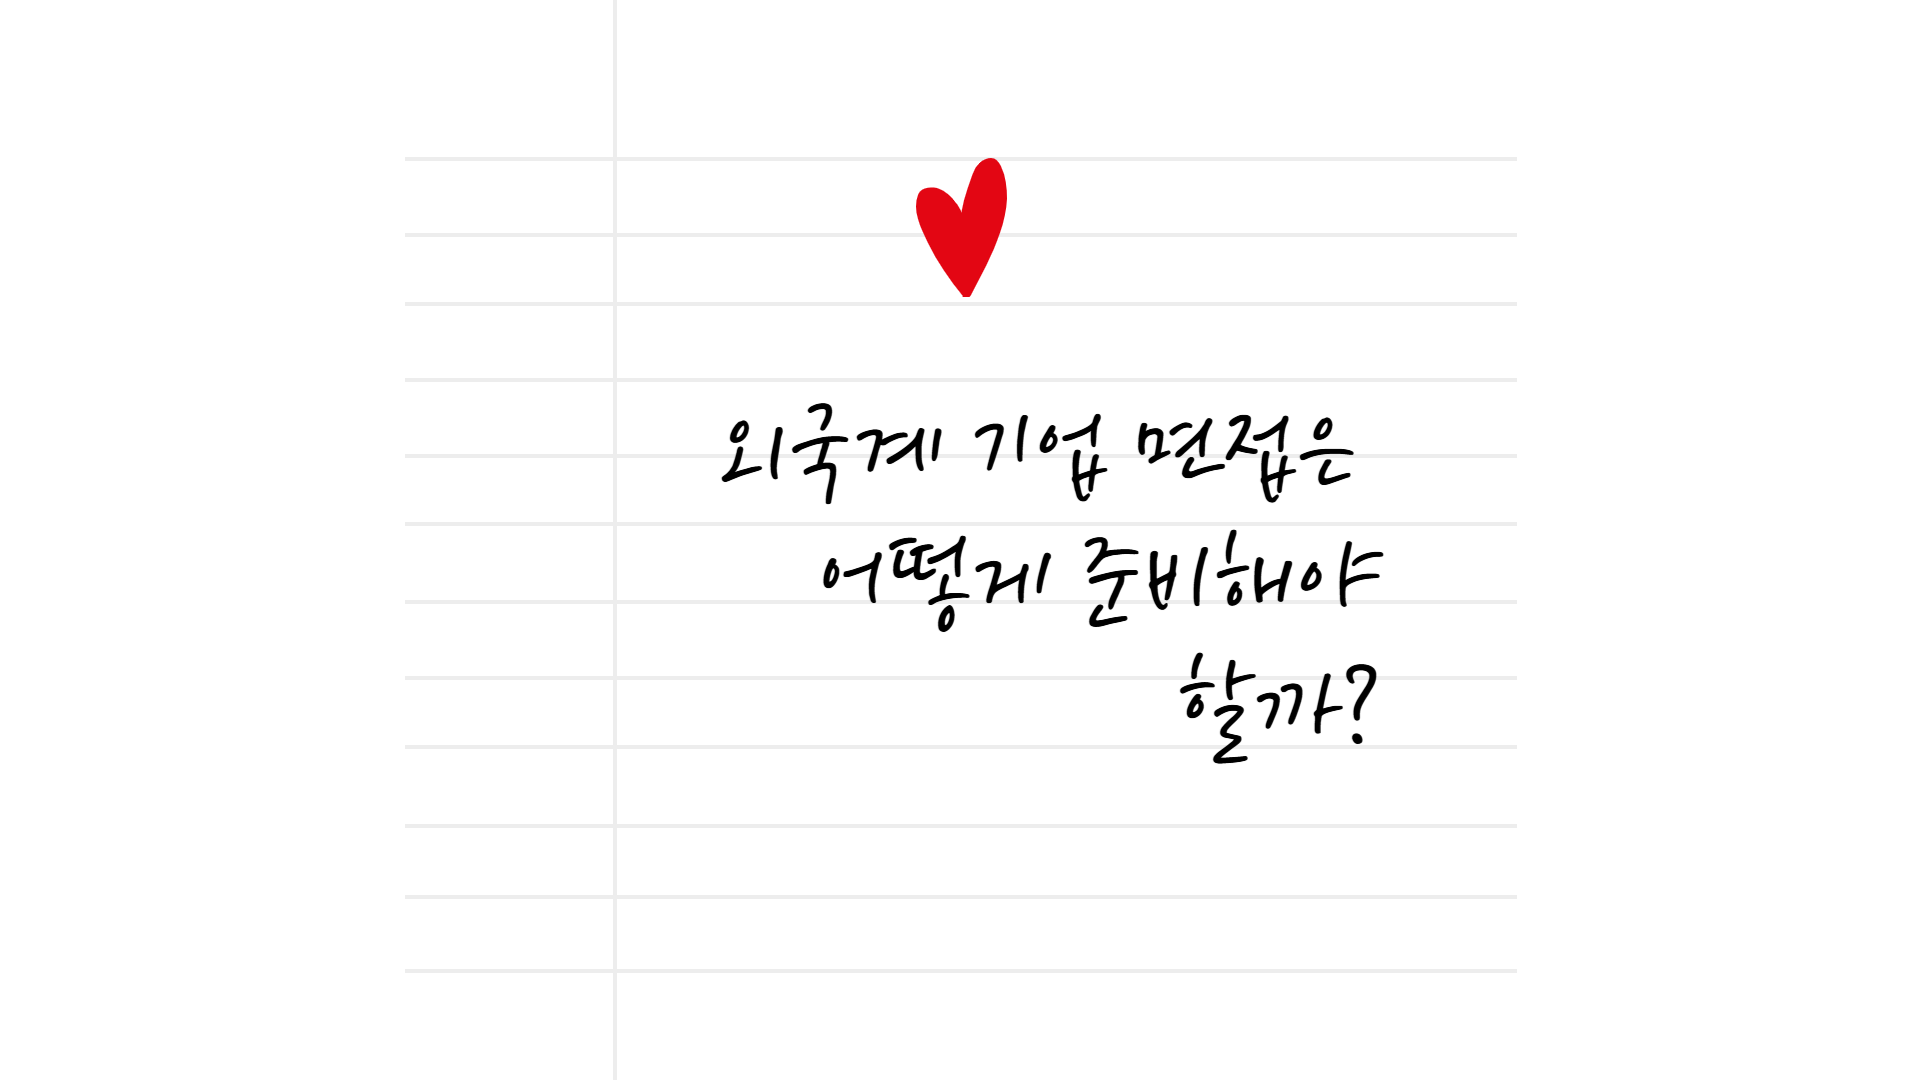 외국계 기업 면접은
어떻게 준비해야
할까?